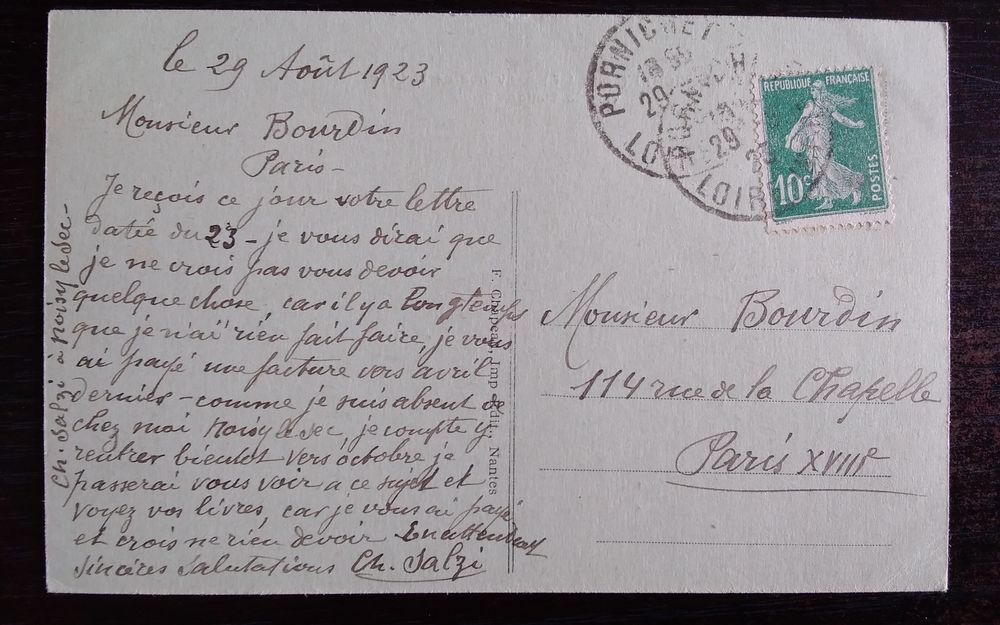 le 29 Août 1923
Monsieur Bourdin
Paris -
Je reçois ce jour votre lettre
datée du 23 - je vous dirai que
je ne crois pas vous devoir
quelque chose, car il y a longtemps
que je n'ai rien fait faire, je vous
ai payé une facture vers avril
dernier - comme je suis absent de
chez moi Noisy le Sec, je compte y
rentrer bientot vers octobre je
passerai vous voir a ce sujet et
voyez vos livres, car je vous ai payé
et crois ne rien devoir En attendant
sincères salutations Ch. Salzi
Ch. Salzi à Noisy le Sec -
F. Chapeau, Imp.-Édit., Nantes
PORNICHET
18 55
29
LOI
29
23
LOIR
REPUBLIQUE FRANÇAISE
10c
POSTES
Monsieur Bourdin
114 rue de la Chapelle
Paris XVIIIe